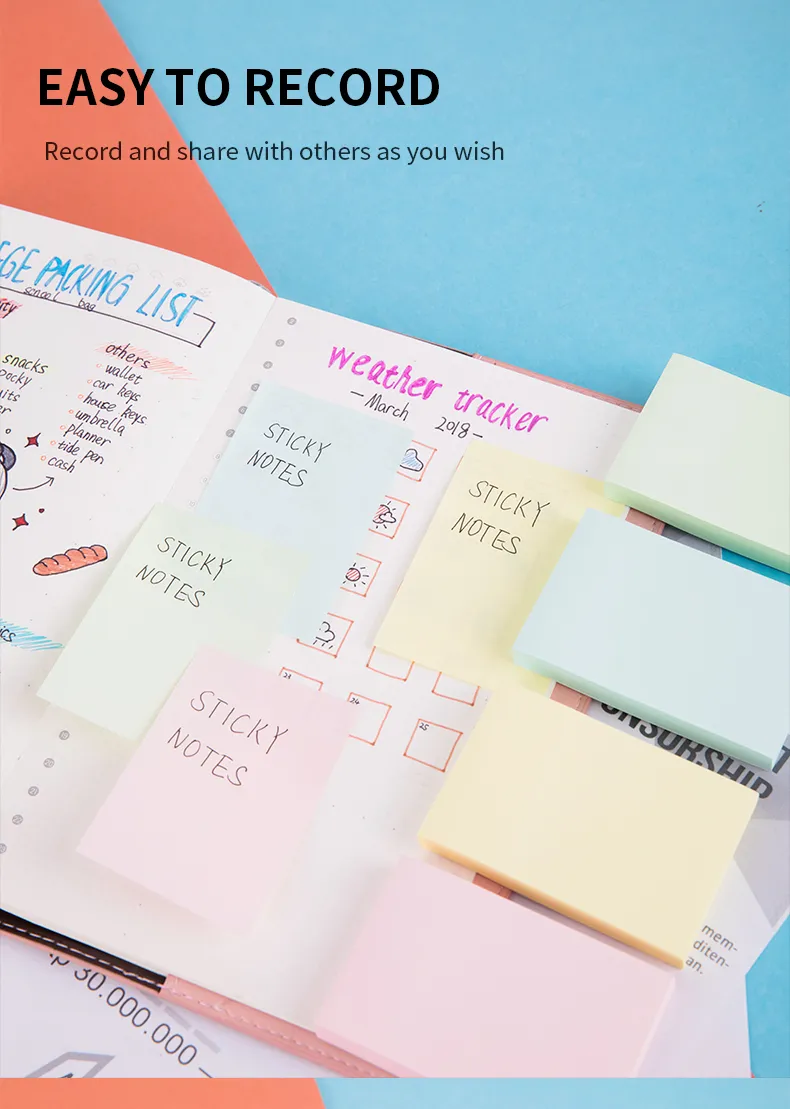 EASY TO RECORD
Record and share with others as you wish
PACKING LIST
school bag
snacks
others
wallet
car keys
house keys
umbrella
planner
tide pen
cash
weather tracker
March 2018
STICKY
NOTES
STICKY
NOTES
STICKY
NOTES
STICKY
NOTES
23
24
25
mem-
diten-
an.
30.000.000